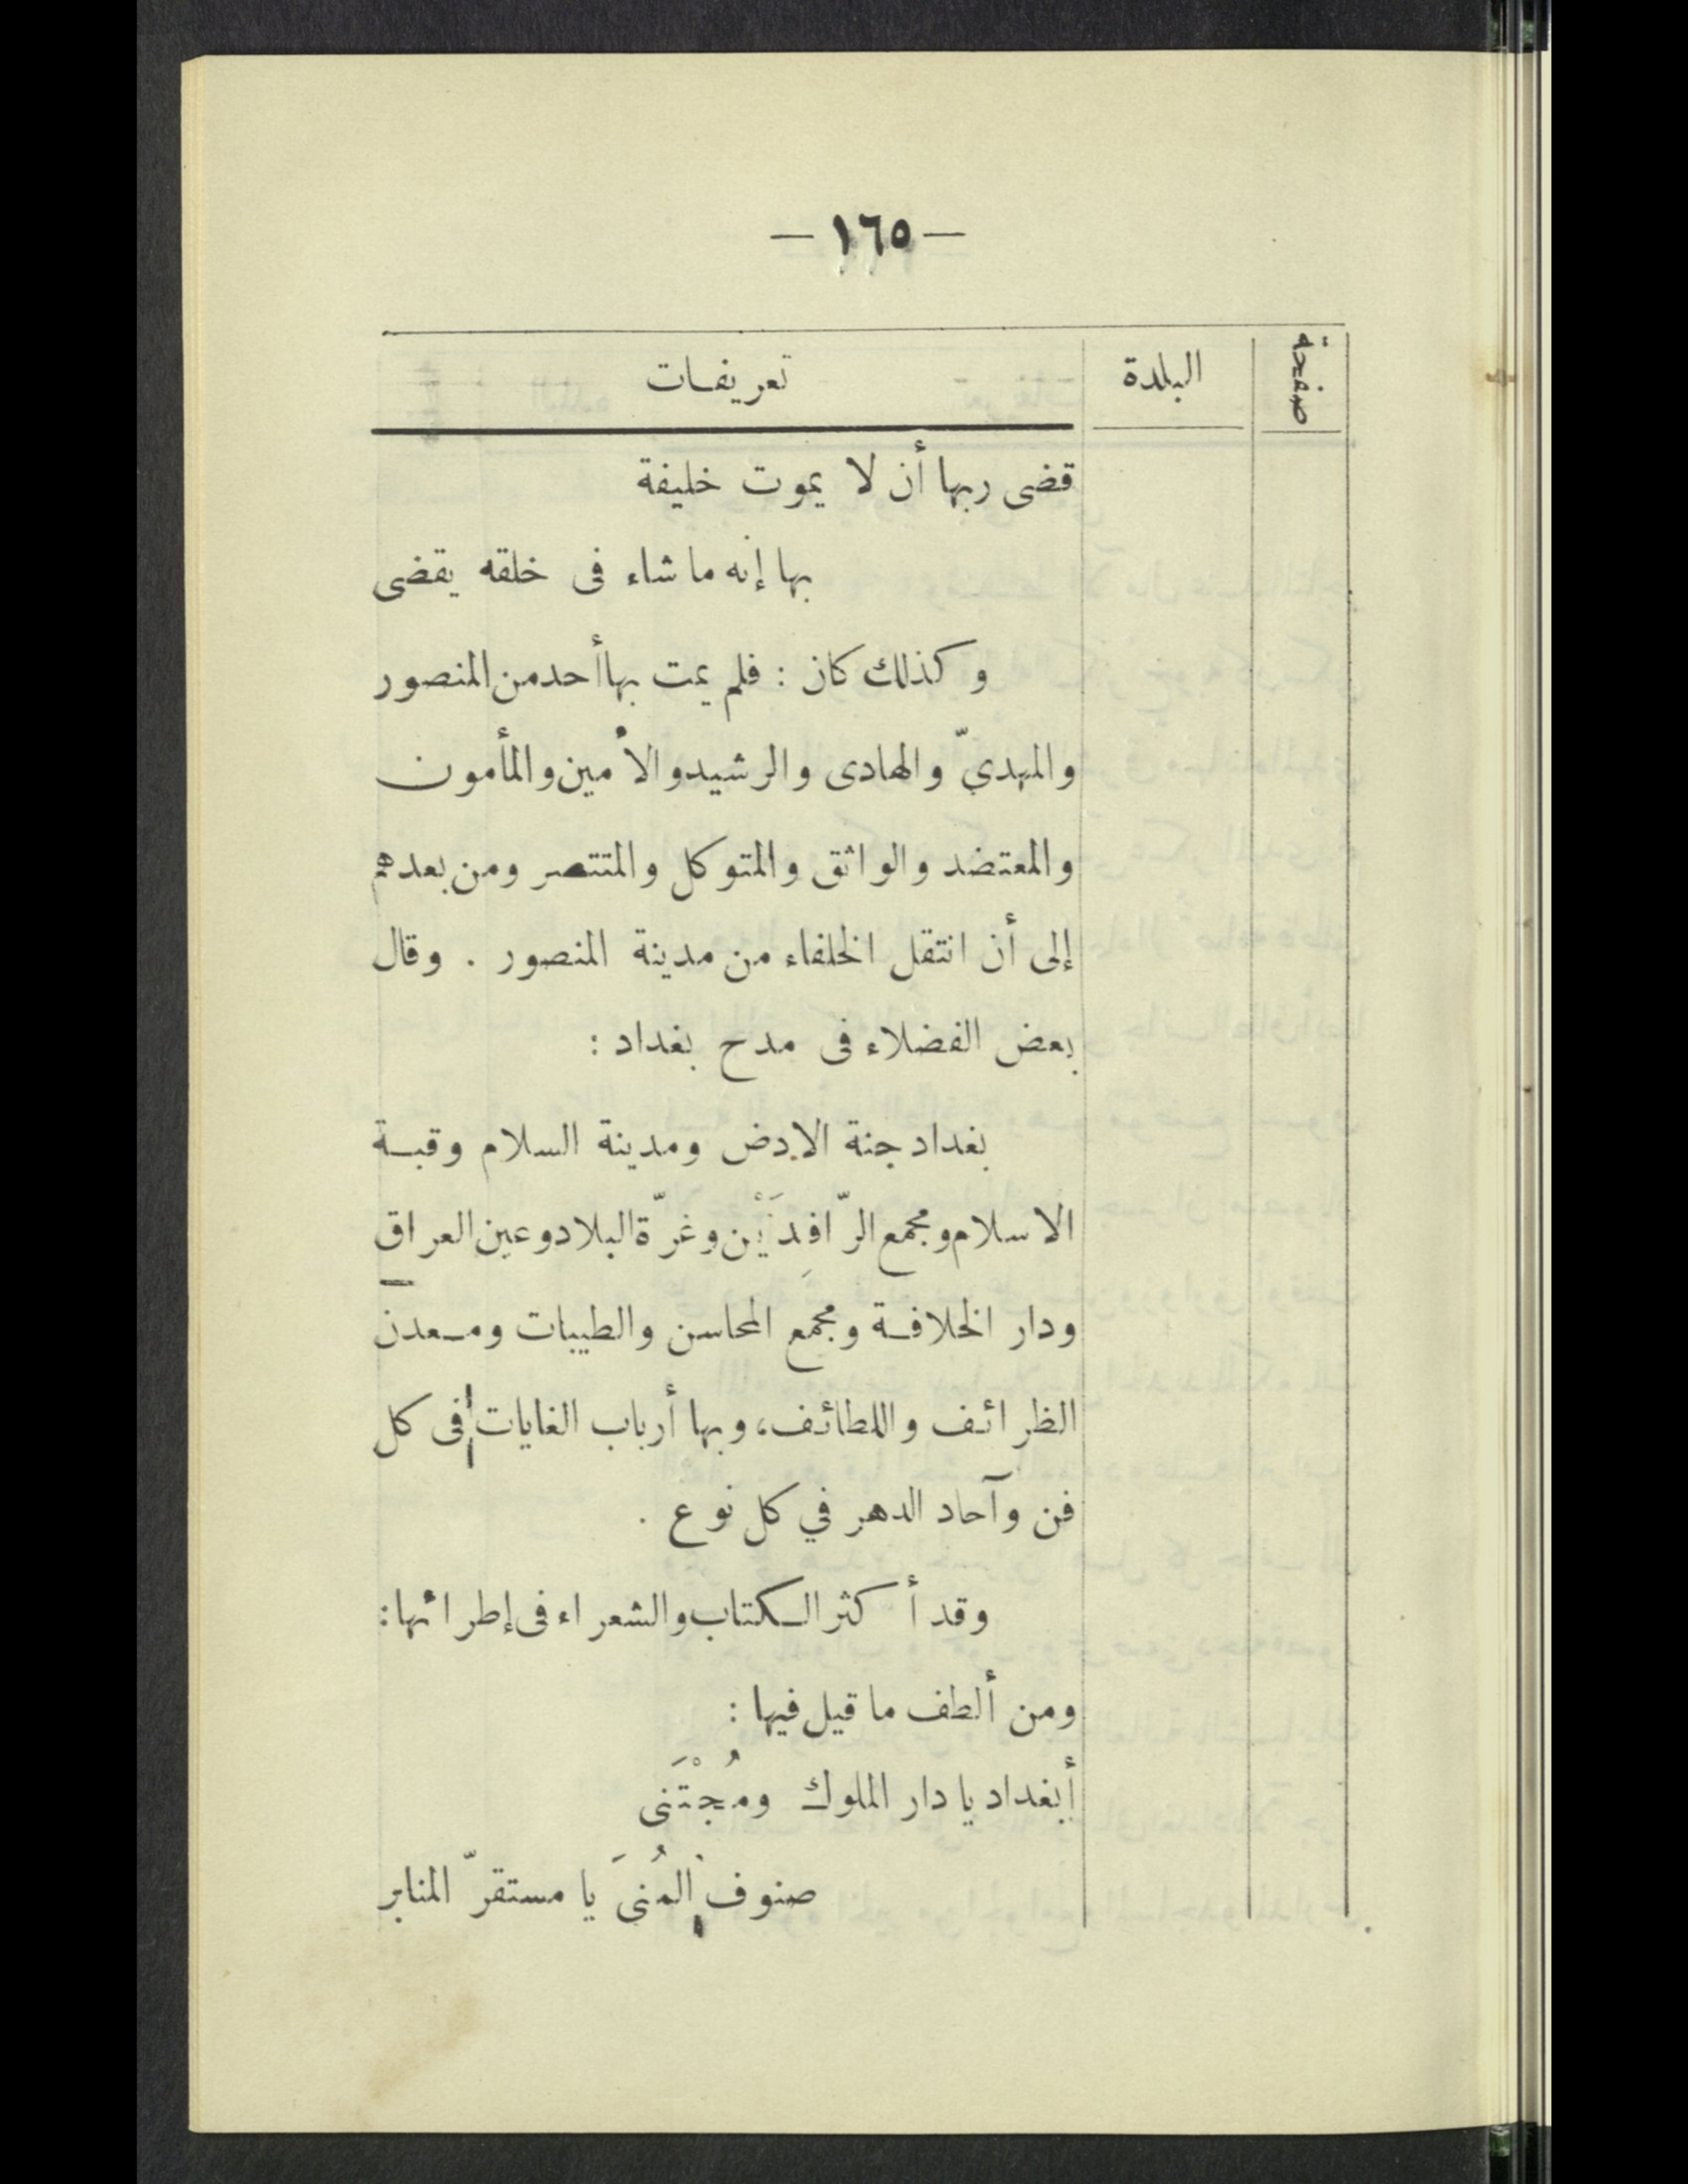 — ١٦٥ —
صفحة البلدة تعريفات
قضى ربها أن لا يموت خليفة
بها إنه ما شاء فى خلقه يقضى
وكذلك كان : فلم يمت بها أحد من المنصور
والمهديّ والهادى والرشيد والأمين والمأمون
والمعتضد والواثق والمتوكل والمنتصر ومن بعدهم
إلى أن انتقل الخلفاء من مدينة المنصور . وقال
بعض الفضلاء فى مدح بغداد :
بغداد جنة الارض ومدينة السلام وقبة
الاسلام ومجمع الرّافِدَيْن وغرّة البلاد وعين العراق
ودار الخلافة ومجمع المحاسن والطيبات ومعدن
الظرائف واللطائف، وبها أرباب الغايات فى كل
فن وآحاد الدهر في كل نوع .
وقد أكثر الكتاب والشعراء فى إطرائها :
ومن ألطف ما قيل فيها :
أبغداد يا دار الملوك ومُجْتَنى
صنوف المُنىَ يا مستقرّ المنابر